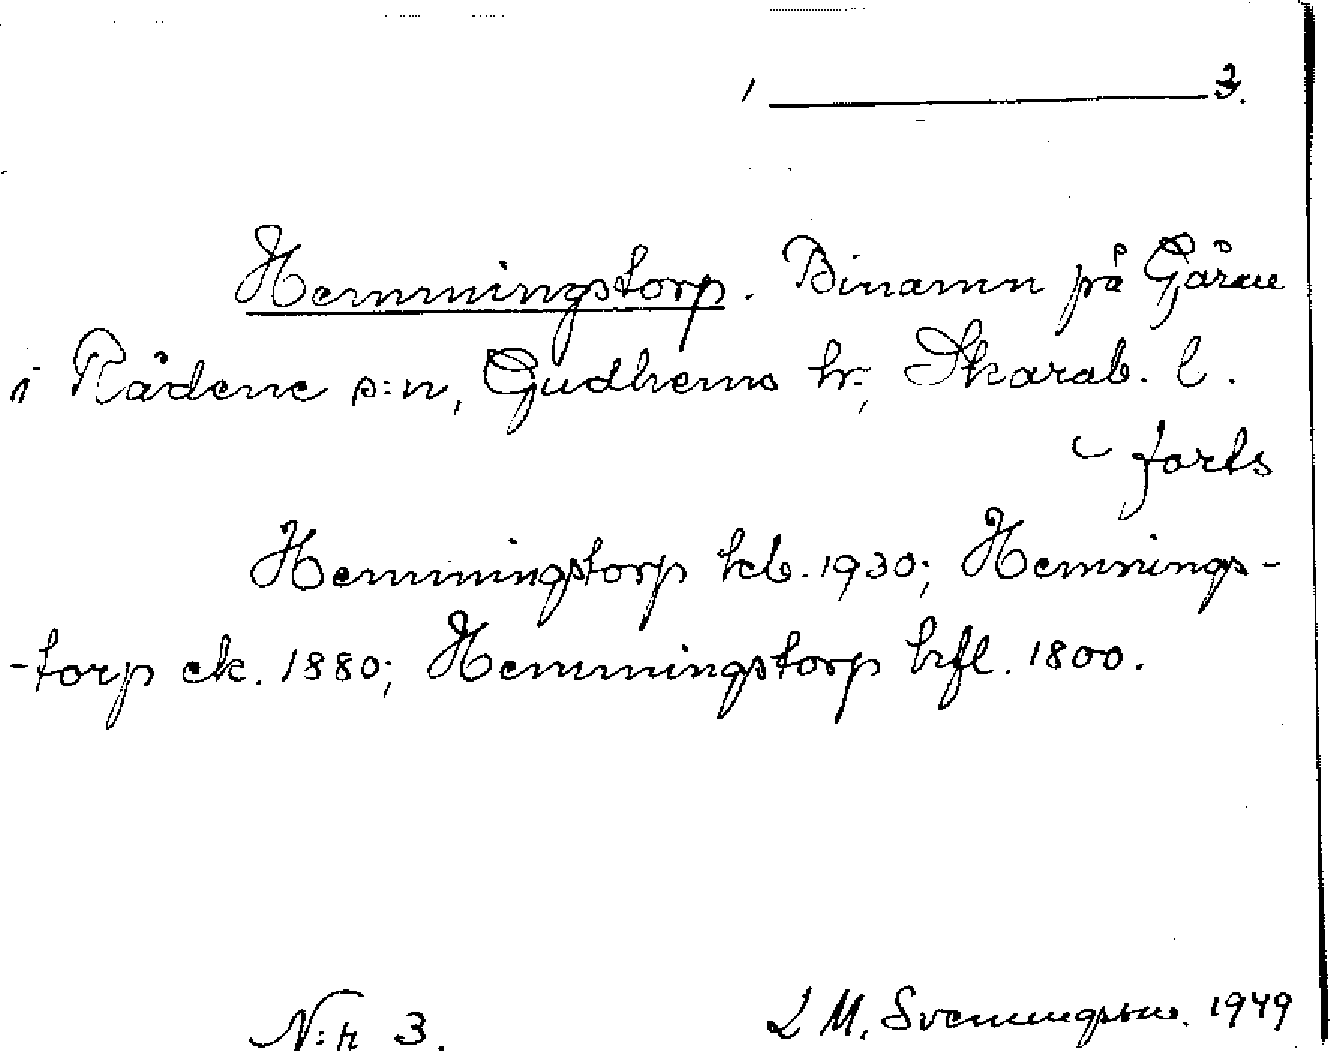 1 ———— 3.
Hemmingstorp. Binamn på Gårau
i Rådene s:n, Gudhems hr; Skarab. l.
forts
Hemmingstorp kb. 1930; Hemnings-
-torp ek. 1880; Hemmingstorp hfl. 1800.
N:r 3.
L M. Svenungsson. 1949